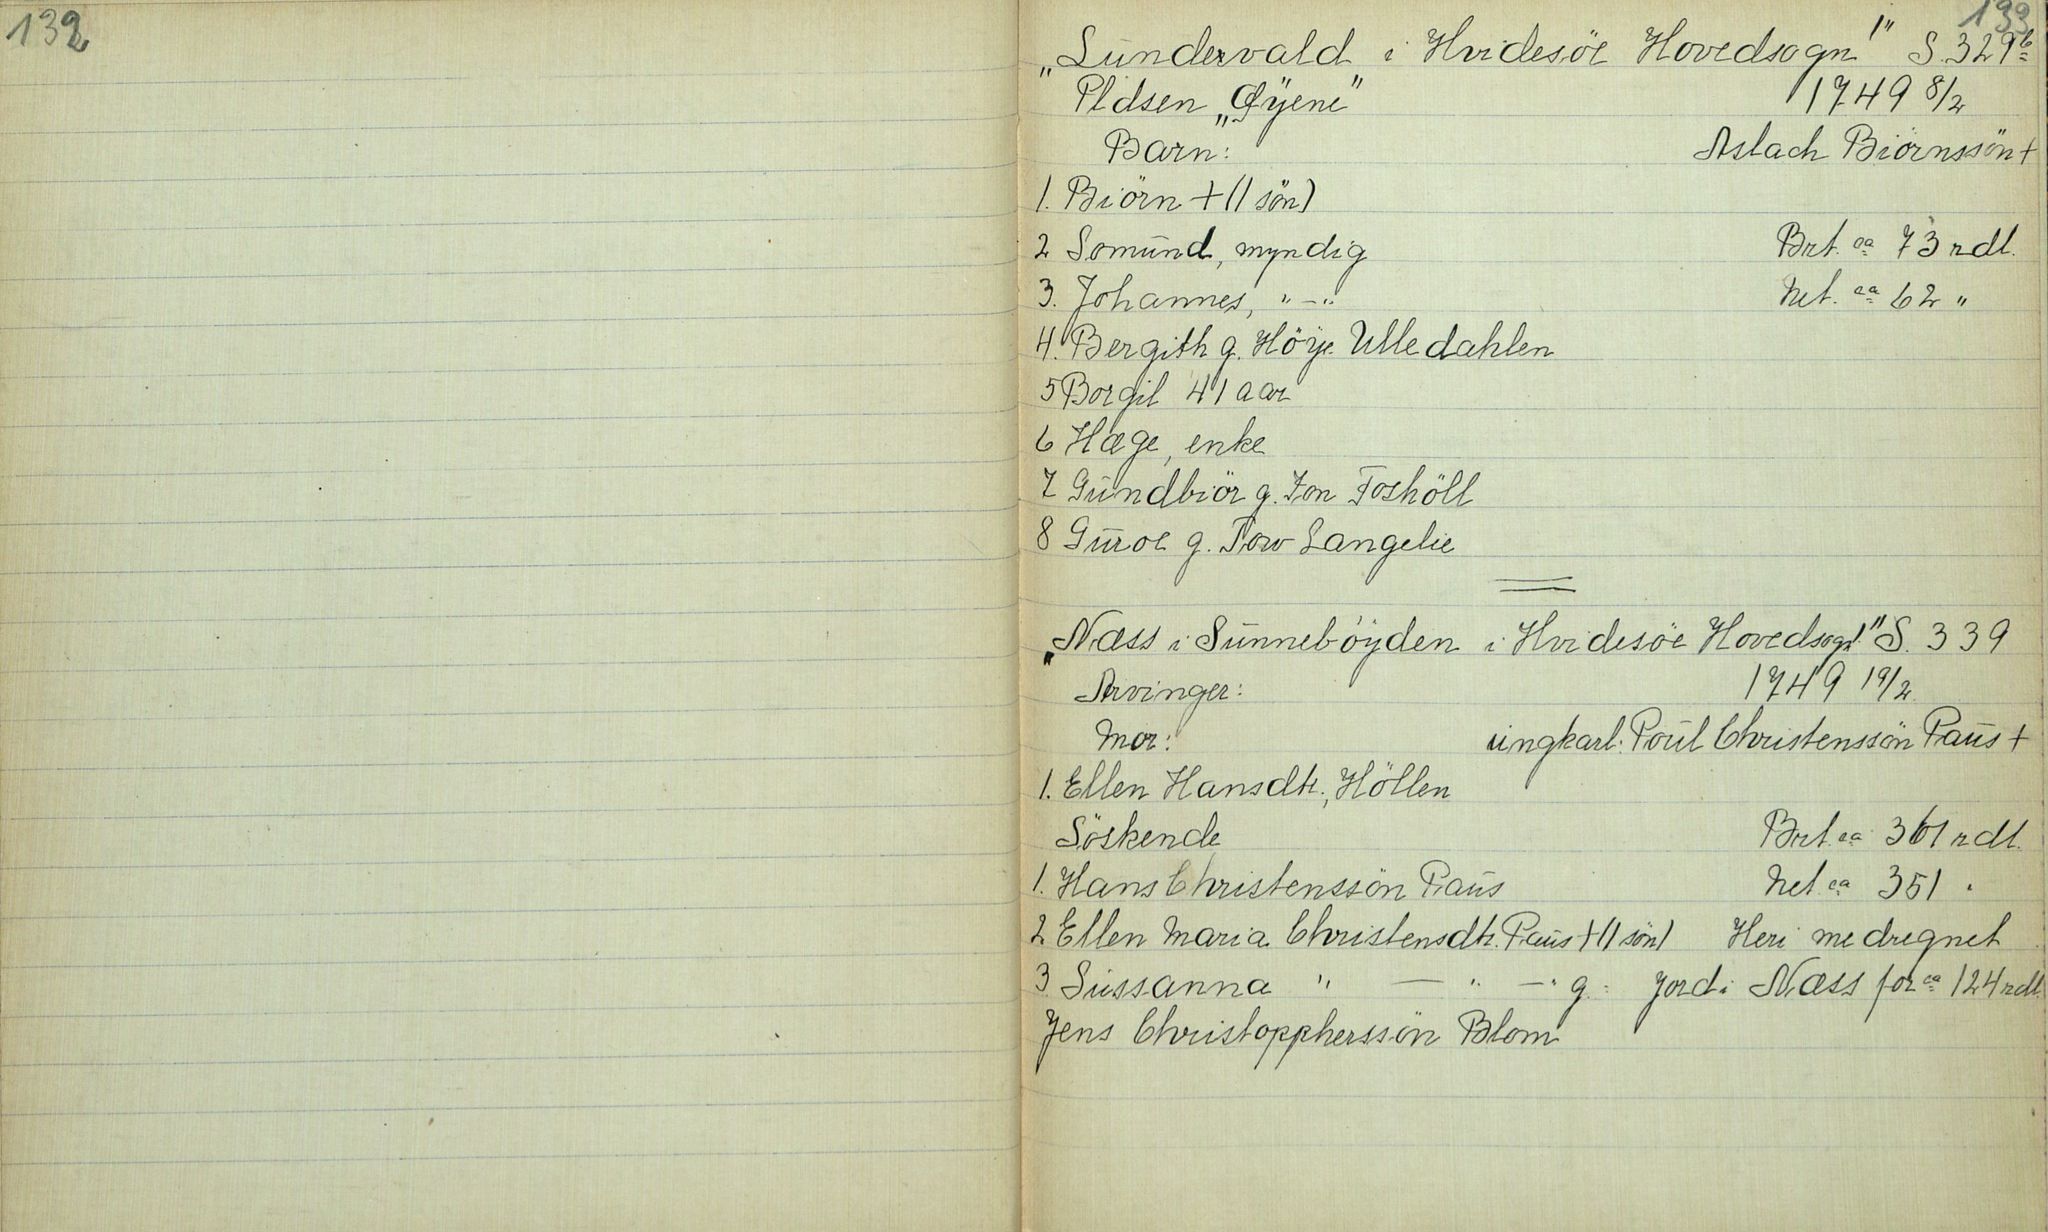 132
133
„Lundervald i Hvidesöe Hovedsogn" S. 329b
Pldsen „Öyene" 1749 8/2
Barn: Aslach Biörnssön +
1. Biörn + (1 sön)
2 Somund, myndig Brt. ca 73 rdl.
3. Johannes, " — " Net. ca 62 "
4. Bergith g. Höye Ulledahlen
5 Borgil 41 aar
6 Hæge, enke
7 Gundbiör g. Jon Foshöll
8 Guroe g. Tow Langelie
„Næss i Sunneböyden i Hvidesöe Hovedsogn" S. 339
Arvinger: 1749 19/2
Mor: ungkarl: Poul Christenssön Paus +
1. Ellen Hansdtr., Höllen
Söskende Brt. ca 361 rdl.
1. Hans Christenssön Paus Net ca 351 "
2. Ellen Maria Christensdtr. Paus + (1 sön) Heri medregnet
3 Sussanna " — " — " g. jord i Næss for ca 124 rdl.
Jens Christopherssön Blom